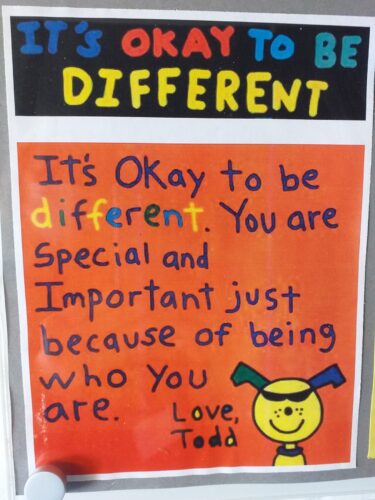 IT'S OKAY TO BE
DIFFERENT
It's Okay to be
different. You are
Special and
Important just
because of being
who You
are.
Love,
Todd